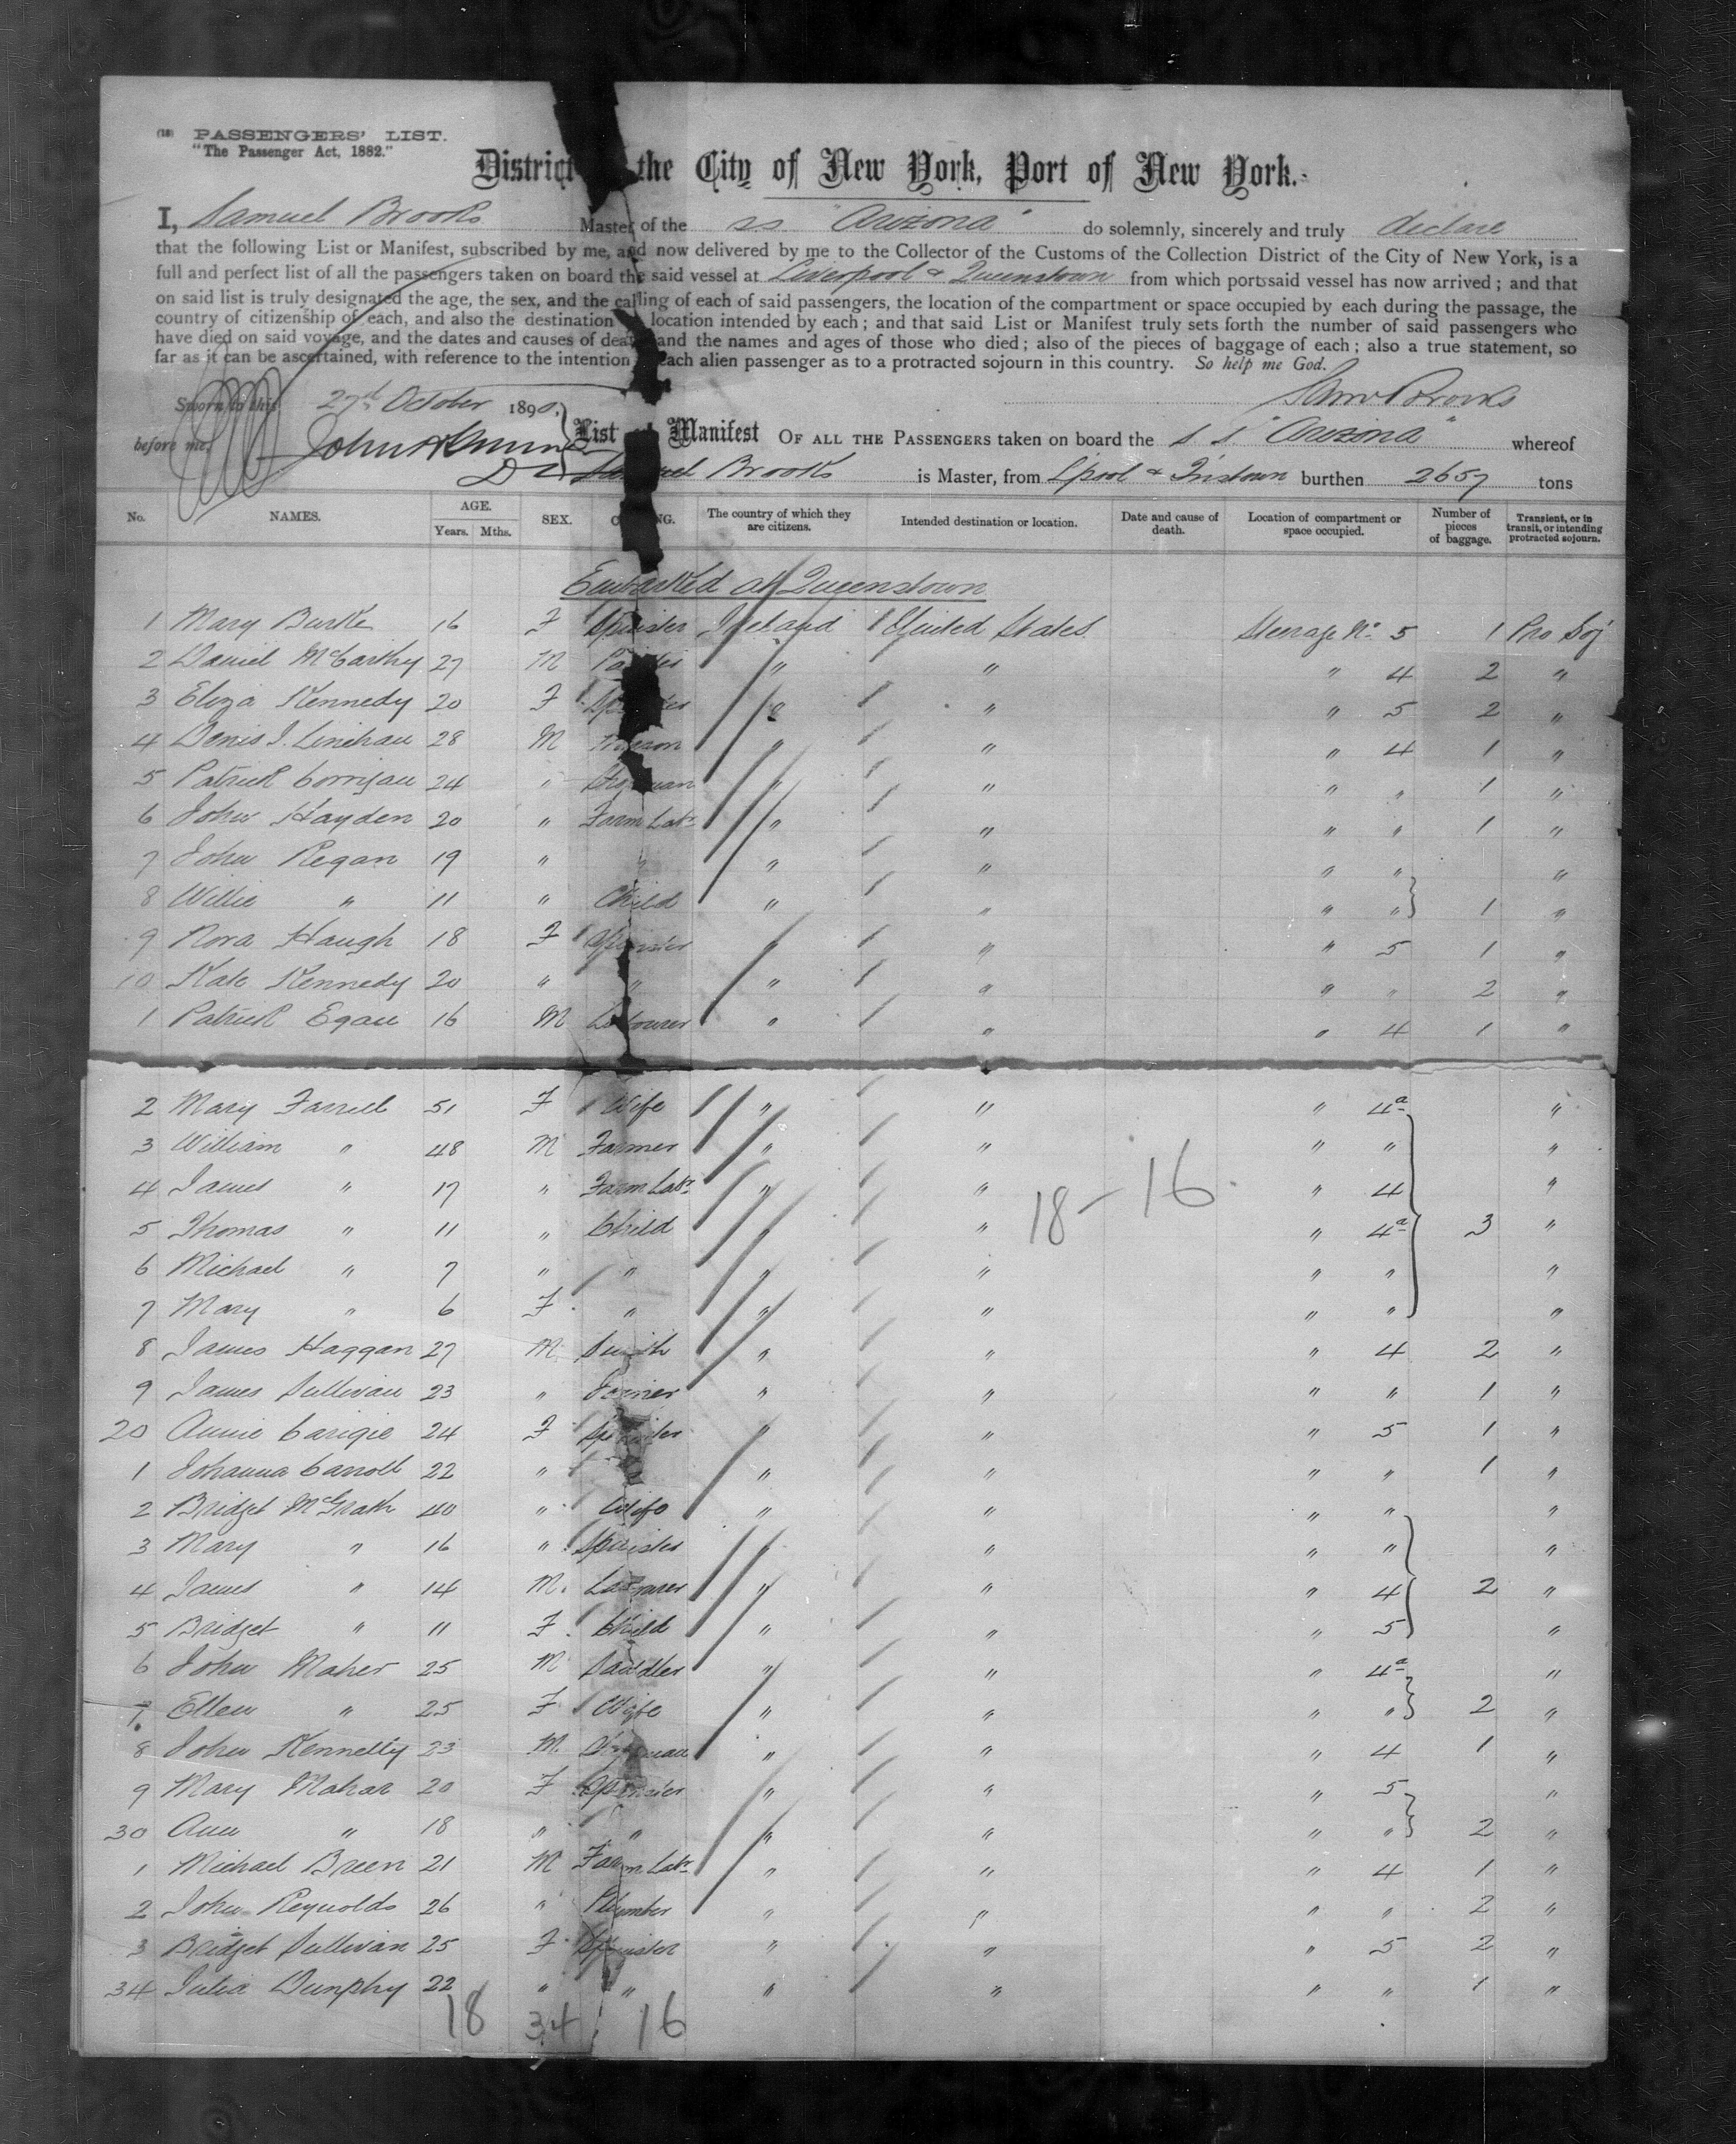 (18) PASSENGERS' LIST.
"The Passenger Act, 1882."
District the City of New York, Port of New York.
I, Samuel Brooks Master of the ss "Arizona" do solemnly, sincerely and truly declare
that the following List or Manifest, subscribed by me, and now delivered by me to the Collector of the Customs of the Collection District of the City of New York, is a
full and perfect list of all the passengers taken on board the said vessel at Liverpool & Queenstown from which port said vessel has now arrived; and that
on said list is truly designated the age, the sex, and the calling of each of said passengers, the location of the compartment or space occupied by each during the passage, the
country of citizenship of each, and also the destination location intended by each; and that said List or Manifest truly sets forth the number of said passengers who
have died on said voyage, and the dates and causes of death and the names and ages of those who died; also of the pieces of baggage of each; also a true statement, so
far as it can be ascertained, with reference to the intention each alien passenger as to a protracted sojourn in this country. So help me God.
Sworn to this 27th October 1890, Saml Brooks
before me List Manifest OF ALL THE PASSENGERS taken on board the s s "Arizona" whereof
Samuel Brooks is Master, from L'pool & Q'nstown burthen 2657 tons
No. NAMES. AGE. Years. Mths. SEX. The country of which they are citizens. Intended destination or location. Date and cause of death. Location of compartment or space occupied. Number of pieces of baggage. Transient, or in transit, or intending protracted sojourn.
Embarked at Queenstown
1 Mary Burke 16 F Spinster Ireland United States Steerage No 5 1 Pro Soj
2 Daniel McCarthy 27 M " " " 4 2 "
3 Eliza Kennedy 20 F Spinster " " " 5 2 "
4 Denis J. Linehan 28 M " " " 4 1 "
5 Patrick Corrigan 24 " " " " " 1 "
6 John Hayden 20 " Farm Labr " " " " 1 "
7 John Regan 19 " " " " " " "
8 Willie " 11 " Child " " " " 1 "
9 Nora Haugh 18 F Spinster " " " 5 1 "
10 Kate Kennedy 20 " " " " " " 2 "
1 Patrick Egan 16 M Labourer " " " 4 1 "
2 Mary Farrell 51 F Wife " " " 4a "
3 William " 48 M Farmer " " " " "
4 James " 17 " Farm Labr " " " 4 "
18 - 16
5 Thomas " 11 " Child " " " 4a 3 "
6 Michael " 7 " " " " " " "
7 Mary " 6 F " " " " " "
8 James Haggan 27 M Smith " " " 4 2 "
9 James Sullivan 23 " Joiner " " " " 1 "
20 Annie Carigie 24 F Spinster " " " 5 1 "
1 Johanna Carroll 22 " " " " " 1 "
2 Bridget McGrath 40 " Wife " " " " "
3 Mary " 16 " Spinster " " " " "
4 James " 14 M. Labourer " " " 4 2 "
5 Bridget " 11 F. Child " " " 5 "
6 John Maher 25 M Saddler " " " 4a "
7 Ellen " 25 F Wife " " " " 2 "
8 John Kennelly 23 M. " " " 4 1 "
9 Mary Mahar 20 F Spinster " " " 5 "
30 Ann " 18 " " " " " " 2 "
1 Michael Breen 21 M Farm Labr " " " 4 1 "
2 John Reynolds 26 " Plumber " " " " 2 "
3 Bridget Sullivan 25 F Spinster " " " 5 2 "
34 Julia Dunphy 22 " " " " " " 1 "
18 34 16